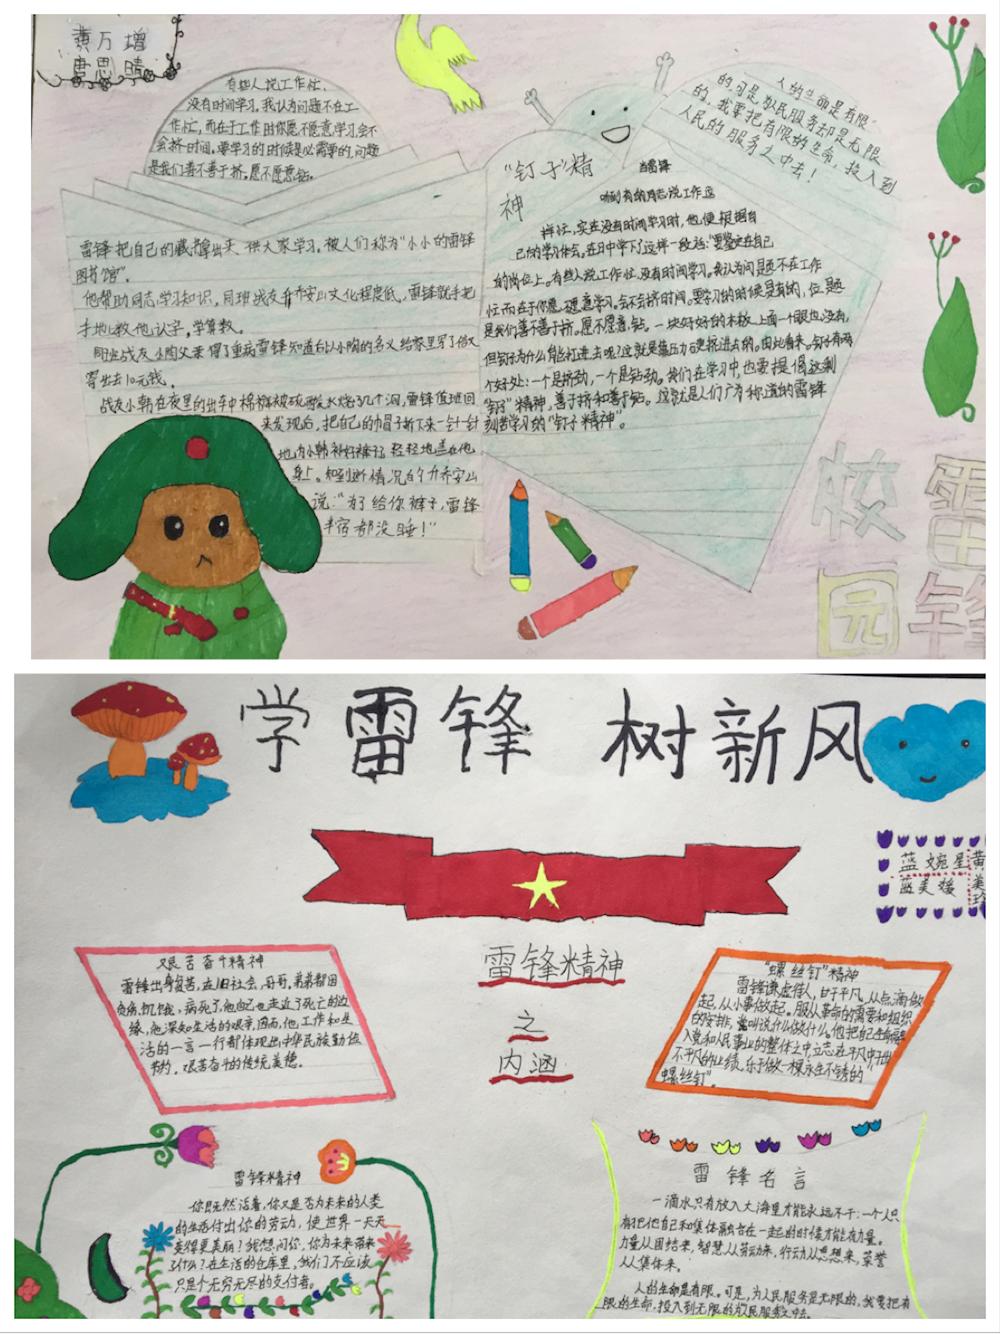 黄万增
唐思晴
有些人说工作忙、
没有时间学习,我认为问题不在工
作忙,而在于工作时你愿不愿意学习,会不
会挤时间。要学习的时候是必需要的,问题
是我们善不善于挤,愿不愿意钻。
雷锋把自己的藏书拿出来 供大家学习,被人们称为“小小的雷锋
图书馆”。
他帮助同志学习知识,同班战友乔安山文化程度低,雷锋就手把
手地教他认字,学算数。
同班战友小周父亲得了重病雷锋知道后以小周的名义给家里写了信又
寄出去10元钱。
战友小韩在夜里的出车中棉裤被硫酸水烧了几个洞,雷锋值班回
来发现后,把自己的帽子拆下来一针一针
地为小韩补好裤子,轻轻地盖在他
身上。知到断情况的乔安山
说:“为了给你裤子,雷锋
半宿都没睡!”
“钉子”精
神
当雷锋
听到有的同志说工作这
样忙,实在没有时间学习时,他便根据自
己的学习体会。在日中学下了这样一段话:“要鉴定在自己
的岗位上。有些人说工作忙、没有时间学习。我认为问题不在工作
忙,而在于你愿不愿意学习。会不会挤时间。要学习的时候是有的,位是题
是我们善不善于挤。愿不愿意钻。一块好好的木板,上面一个眼也没有,
但钉子为什么能钉进去呢?这就是靠压力硬挤进去的。由此看来,钉子有两
个好处:一个是挤劲,一个是钻劲。我们在学习中,也要提倡这剩
“钉子”精神,善于挤和善于钻。这就是人们广为称道的雷锋
刻苦学习的“钉子精神”。
人的生命是有限
的,可是,为人民服务却是无限
的,我要把有限的生命,投入到
人民的服务之中去!
校 雷
园 锋
学雷锋 树新风
蓝婉星 黄
蓝美媛 美
玲
艰苦奋斗精神
雷锋出身贫苦,在旧社会,哥哥,弟弟都因
贫病饥饿,病死了,他自己也走近了死亡的边
缘,他深知生活的艰辛,因而,他工作和生
活的一言一行都体现出中华民族勤俭
节约,艰苦奋斗的传统美德。
雷锋精神
之
内涵
“螺丝钉”精神
雷锋谦虚待人,甘于平凡,从点滴做
起,从小事做起。服从革命的需要和组织
的安排,党叫说什么做什么。他把自己生命融
入党和人民事业的整体之中,立志在平凡中干出
不平凡的业绩,乐于做一棵永生不锈的
“螺丝钉”。
雷锋精神
你既然活着,你又是否为未来的人类
的生活付出你的劳动,使世界一天天
变得更美丽?我想问你,你为未来带来
了什么?在生活的仓库里,我们不应该
只是个无穷无尽的支付者。
雷锋名言
一滴水只有放入大海里才能永远不干,一个人只
有把他自己和集体融合在一起的时候才能有力量。
力量从团结来,智慧从劳动来,行动从思想来,荣誉
从集体来。
人的生命是有限。可是,为人民服务是无限的,我要把有
限的生命,投入到无限的为人民服务中去。